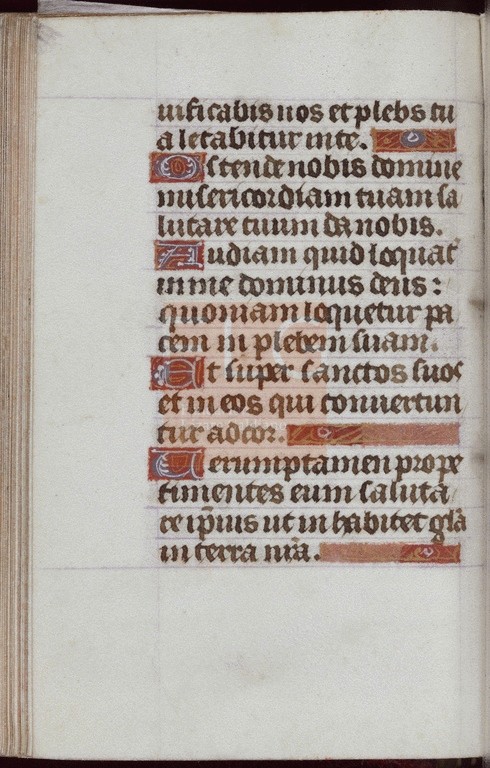 uificabis nos et plebs tu
a letabitur in te.
Ostende nobis domine
misericordiam tuam sa
lutare tuum da nobis.
Audiam quid loquat᷑
in me dominus deus :
quoniam loquetur pa
cem in plebem suam.
Et super sanctos suos
et in eos qui conuertun
tur ad cor.
Uerumptamen prope
timentes eum saluta
re ip̄ius ut in habitet gl̄a
in terra nr̄a.